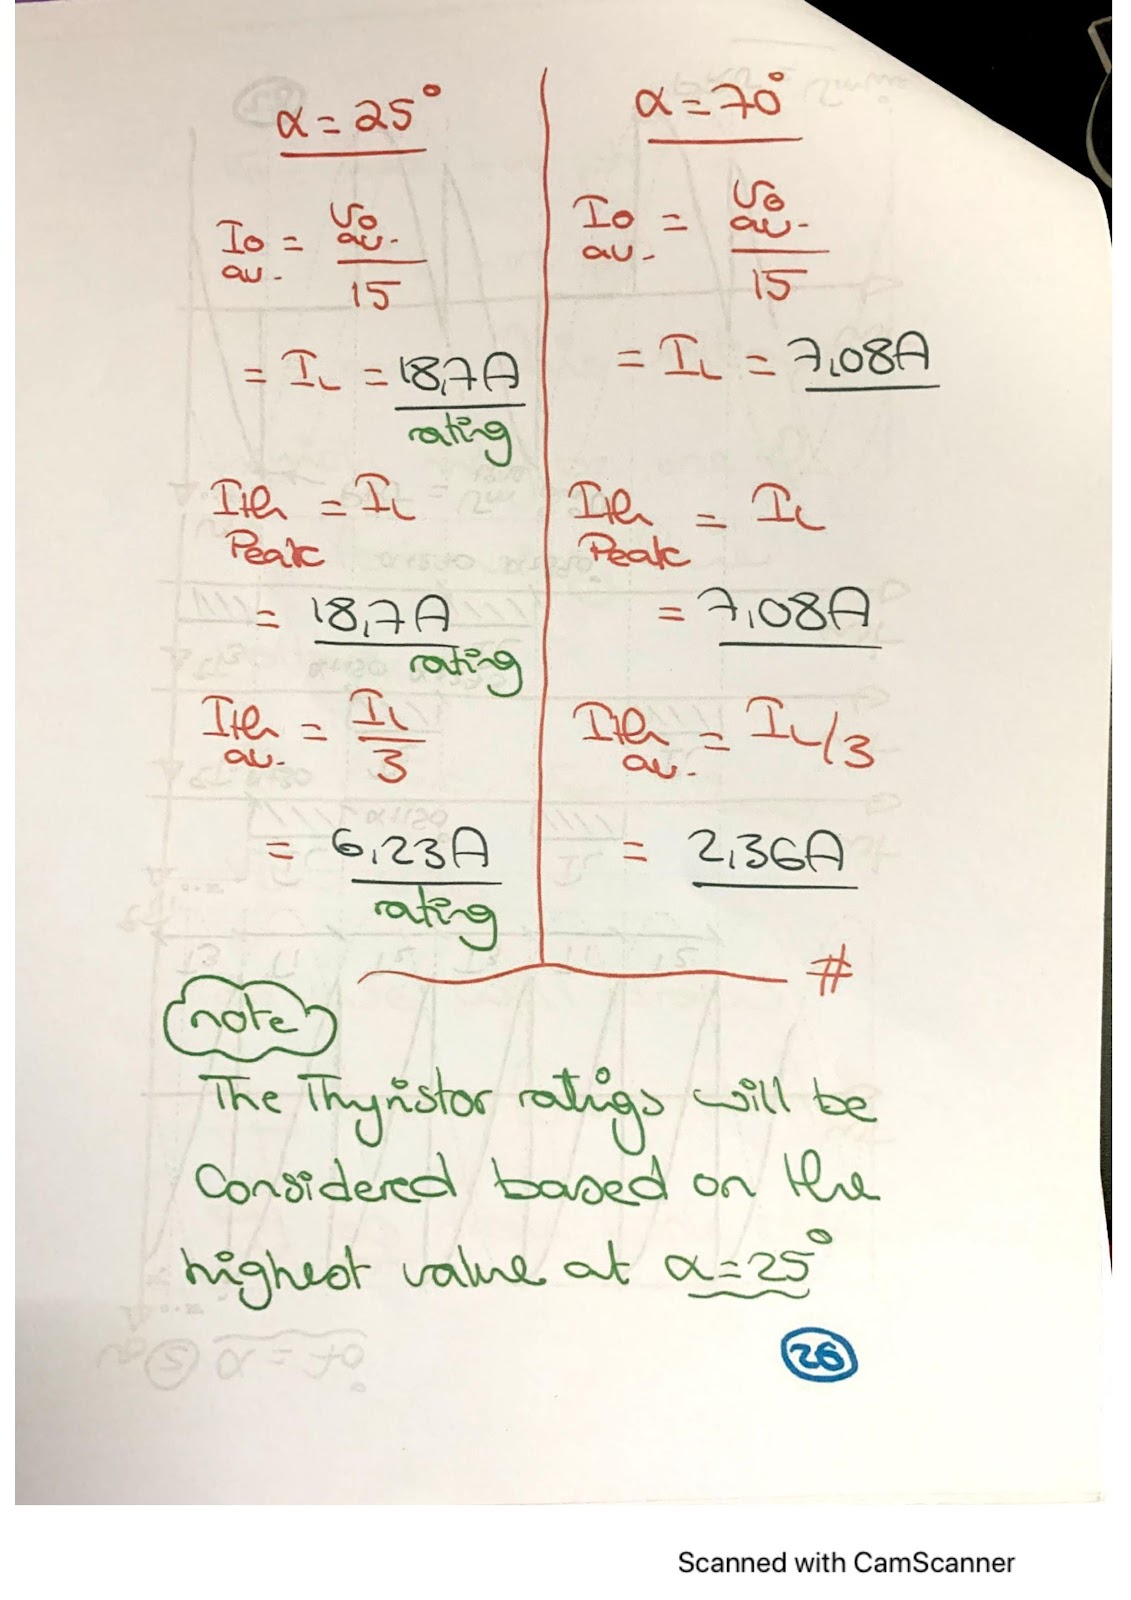 α = 25°
Io av. = Vo av. / 15
= IL = 18,7A
rating
Ith Peak = IL
= 18,7A
rating
Ith av. = IL / 3
= 6,23A
rating
α = 70°
Io av. = Vo av. / 15
= IL = 7,08A
Ith Peak = IL
= 7,08A
Ith av. = IL/3
= 2,36A
#
note
The Thyristor ratigs will be
Considered based on the
highest value at α = 25°
26
Scanned with CamScanner